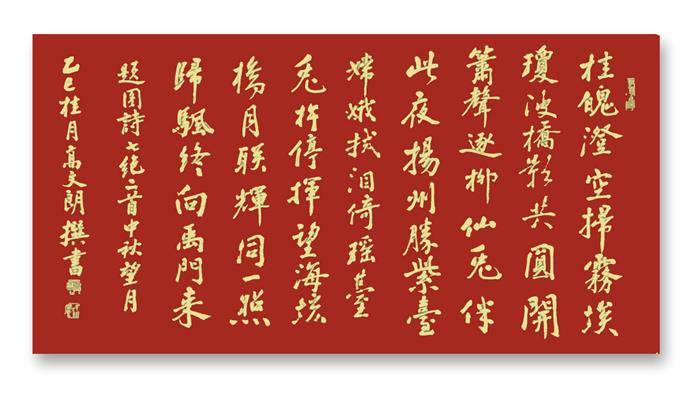 桂魄澄空掃霧埃
瓊波橋影共圓開
簫聲逐柳仙兔伴
此夜揚州勝紫臺
嫦娥拭泪倚瑶臺
兔杵停揮望海垓
月联輝同一照
歸颿終向禹門来
題图詩七绝二首中秋望月
乙巳桂月高文朗撰書